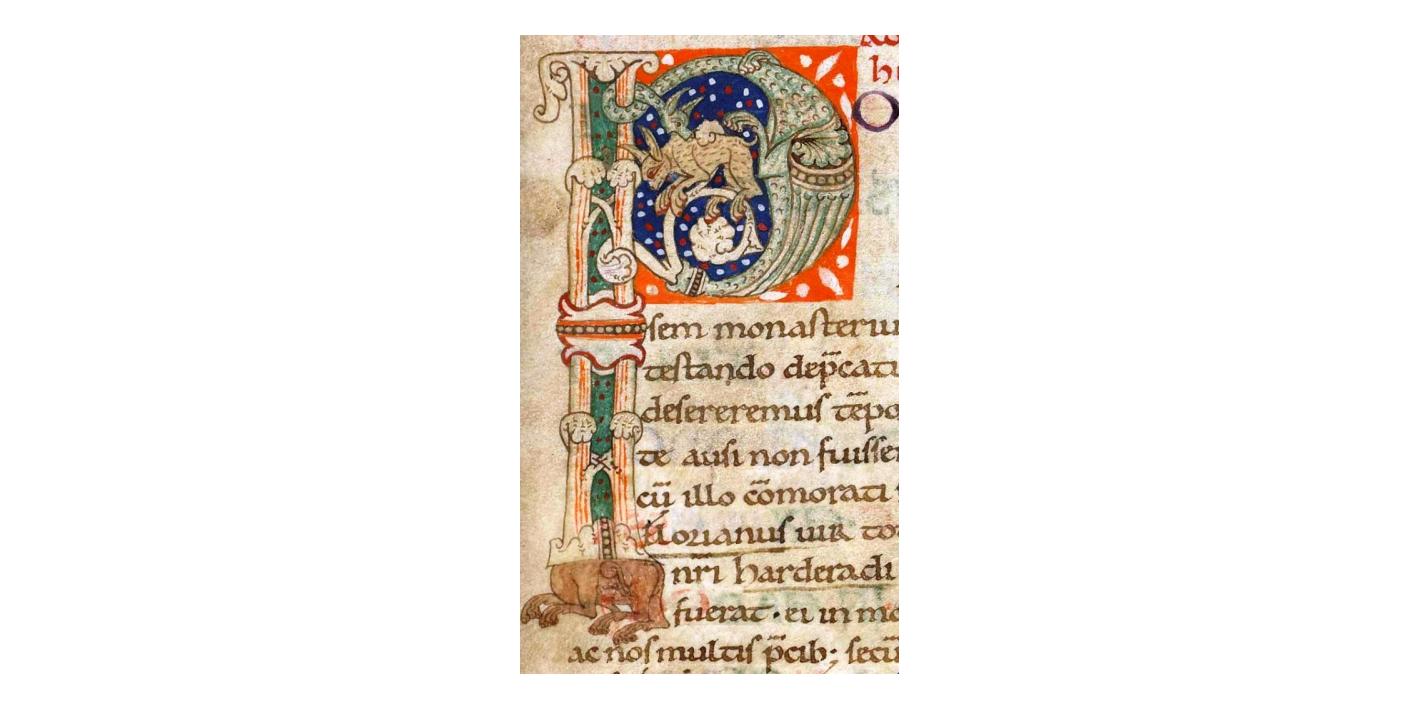 P
h
O
sem monasteriu
testando dep̃cati
desereremus tẽpo
te ausi non fuisse
cũ illo cõmorati
florianus uir to
nr̃i harderadi
fuerat · ei in mo
ac nos multis p̃cib; secũ